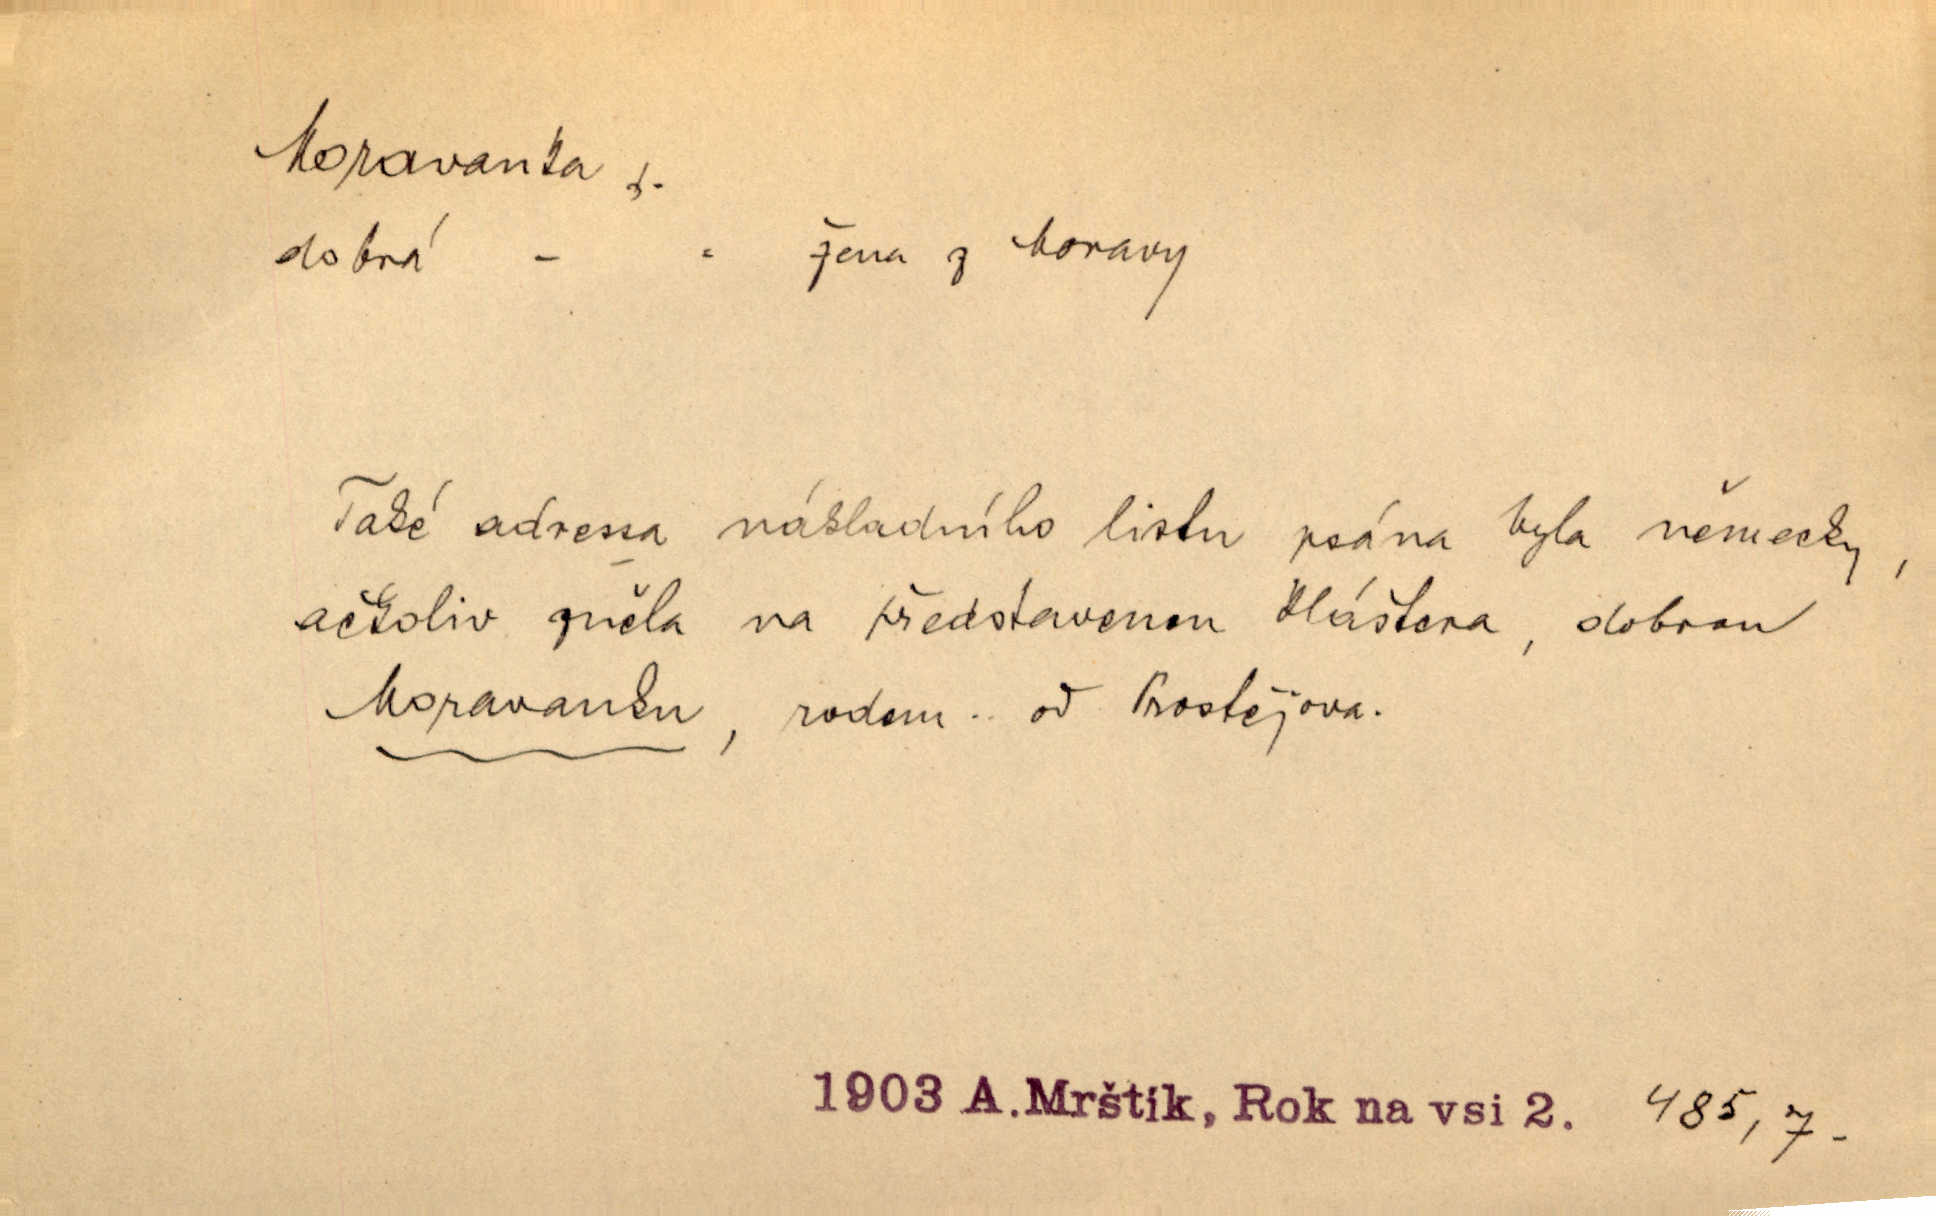 Moravanka f.
dobrá - - žena z Moravy
Také adressa nákladního listu psána byla německy,
ačkoliv zněla na představenou kláštera, dobrou
Moravanku, rodem .. od Prostějova.
1903 A.Mrštík, Rok na vsi 2. 485,7-